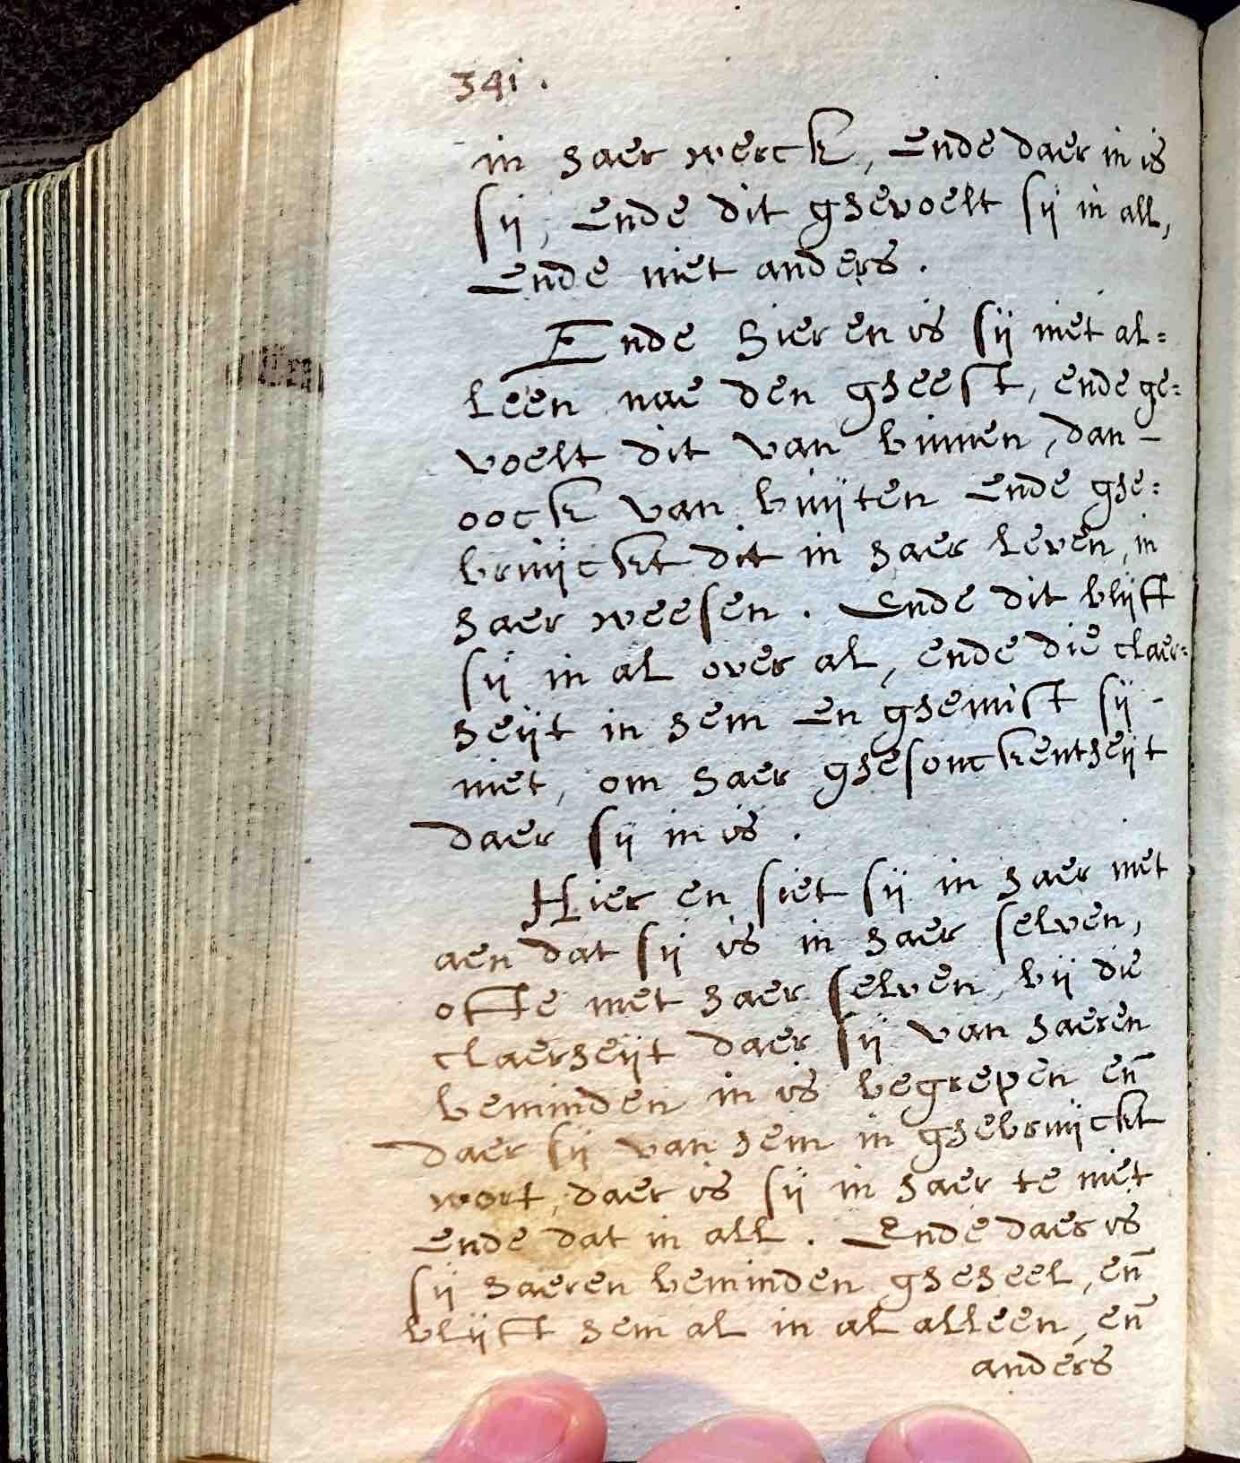 341.
in haer werck, Ende daer in is
sij, Ende dit ghevoelt sij in all,
Ende niet anders.
Ende hier en is sij niet al=
leen nae den gheest, ende ge=
voelt dit van binnen, dan –
oock van buijten Ende ghe=
bruijckt dit in haer leven, in
haer weesen. Ende dit blijft
sij in al over al, ende die claer=
heijt in hem en ghemist sij –
niet, om haer ghesonckentheijt
daer sij in is.
Hier en siet sij in haer niet
aen dat sij is in haer selven,
ofte met haer selven, bij die
claerheijt daer sij van haeren
beminden in is begrepen eñ
daer sij van hem in ghebruijckt
wort, daer is sij in haer te niet
Ende dat in all. Ende daer is
sij haeren beminden gheheel, eñ
blijft hem al in al alleen, eñ
anders